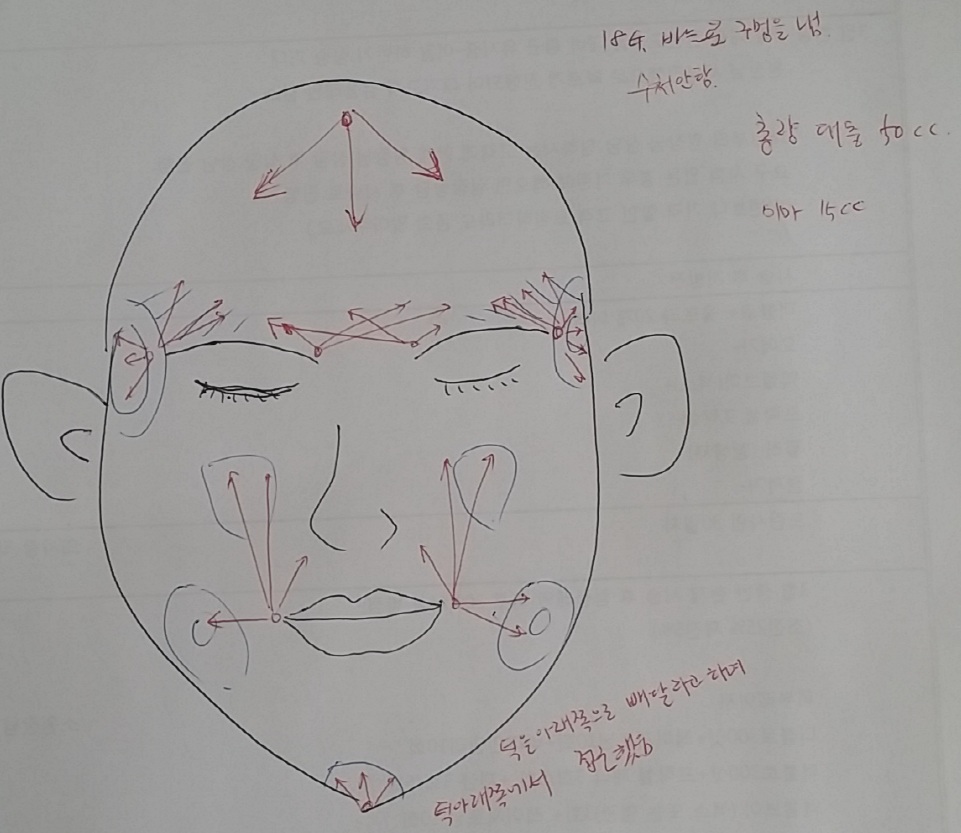 18G 바늘로 구멍을 냄
수처안함.
총량 대들 50cc.
이마 15cc
턱을 아래쪽으로 빼달라고 하며
턱아래쪽에서 접근했음